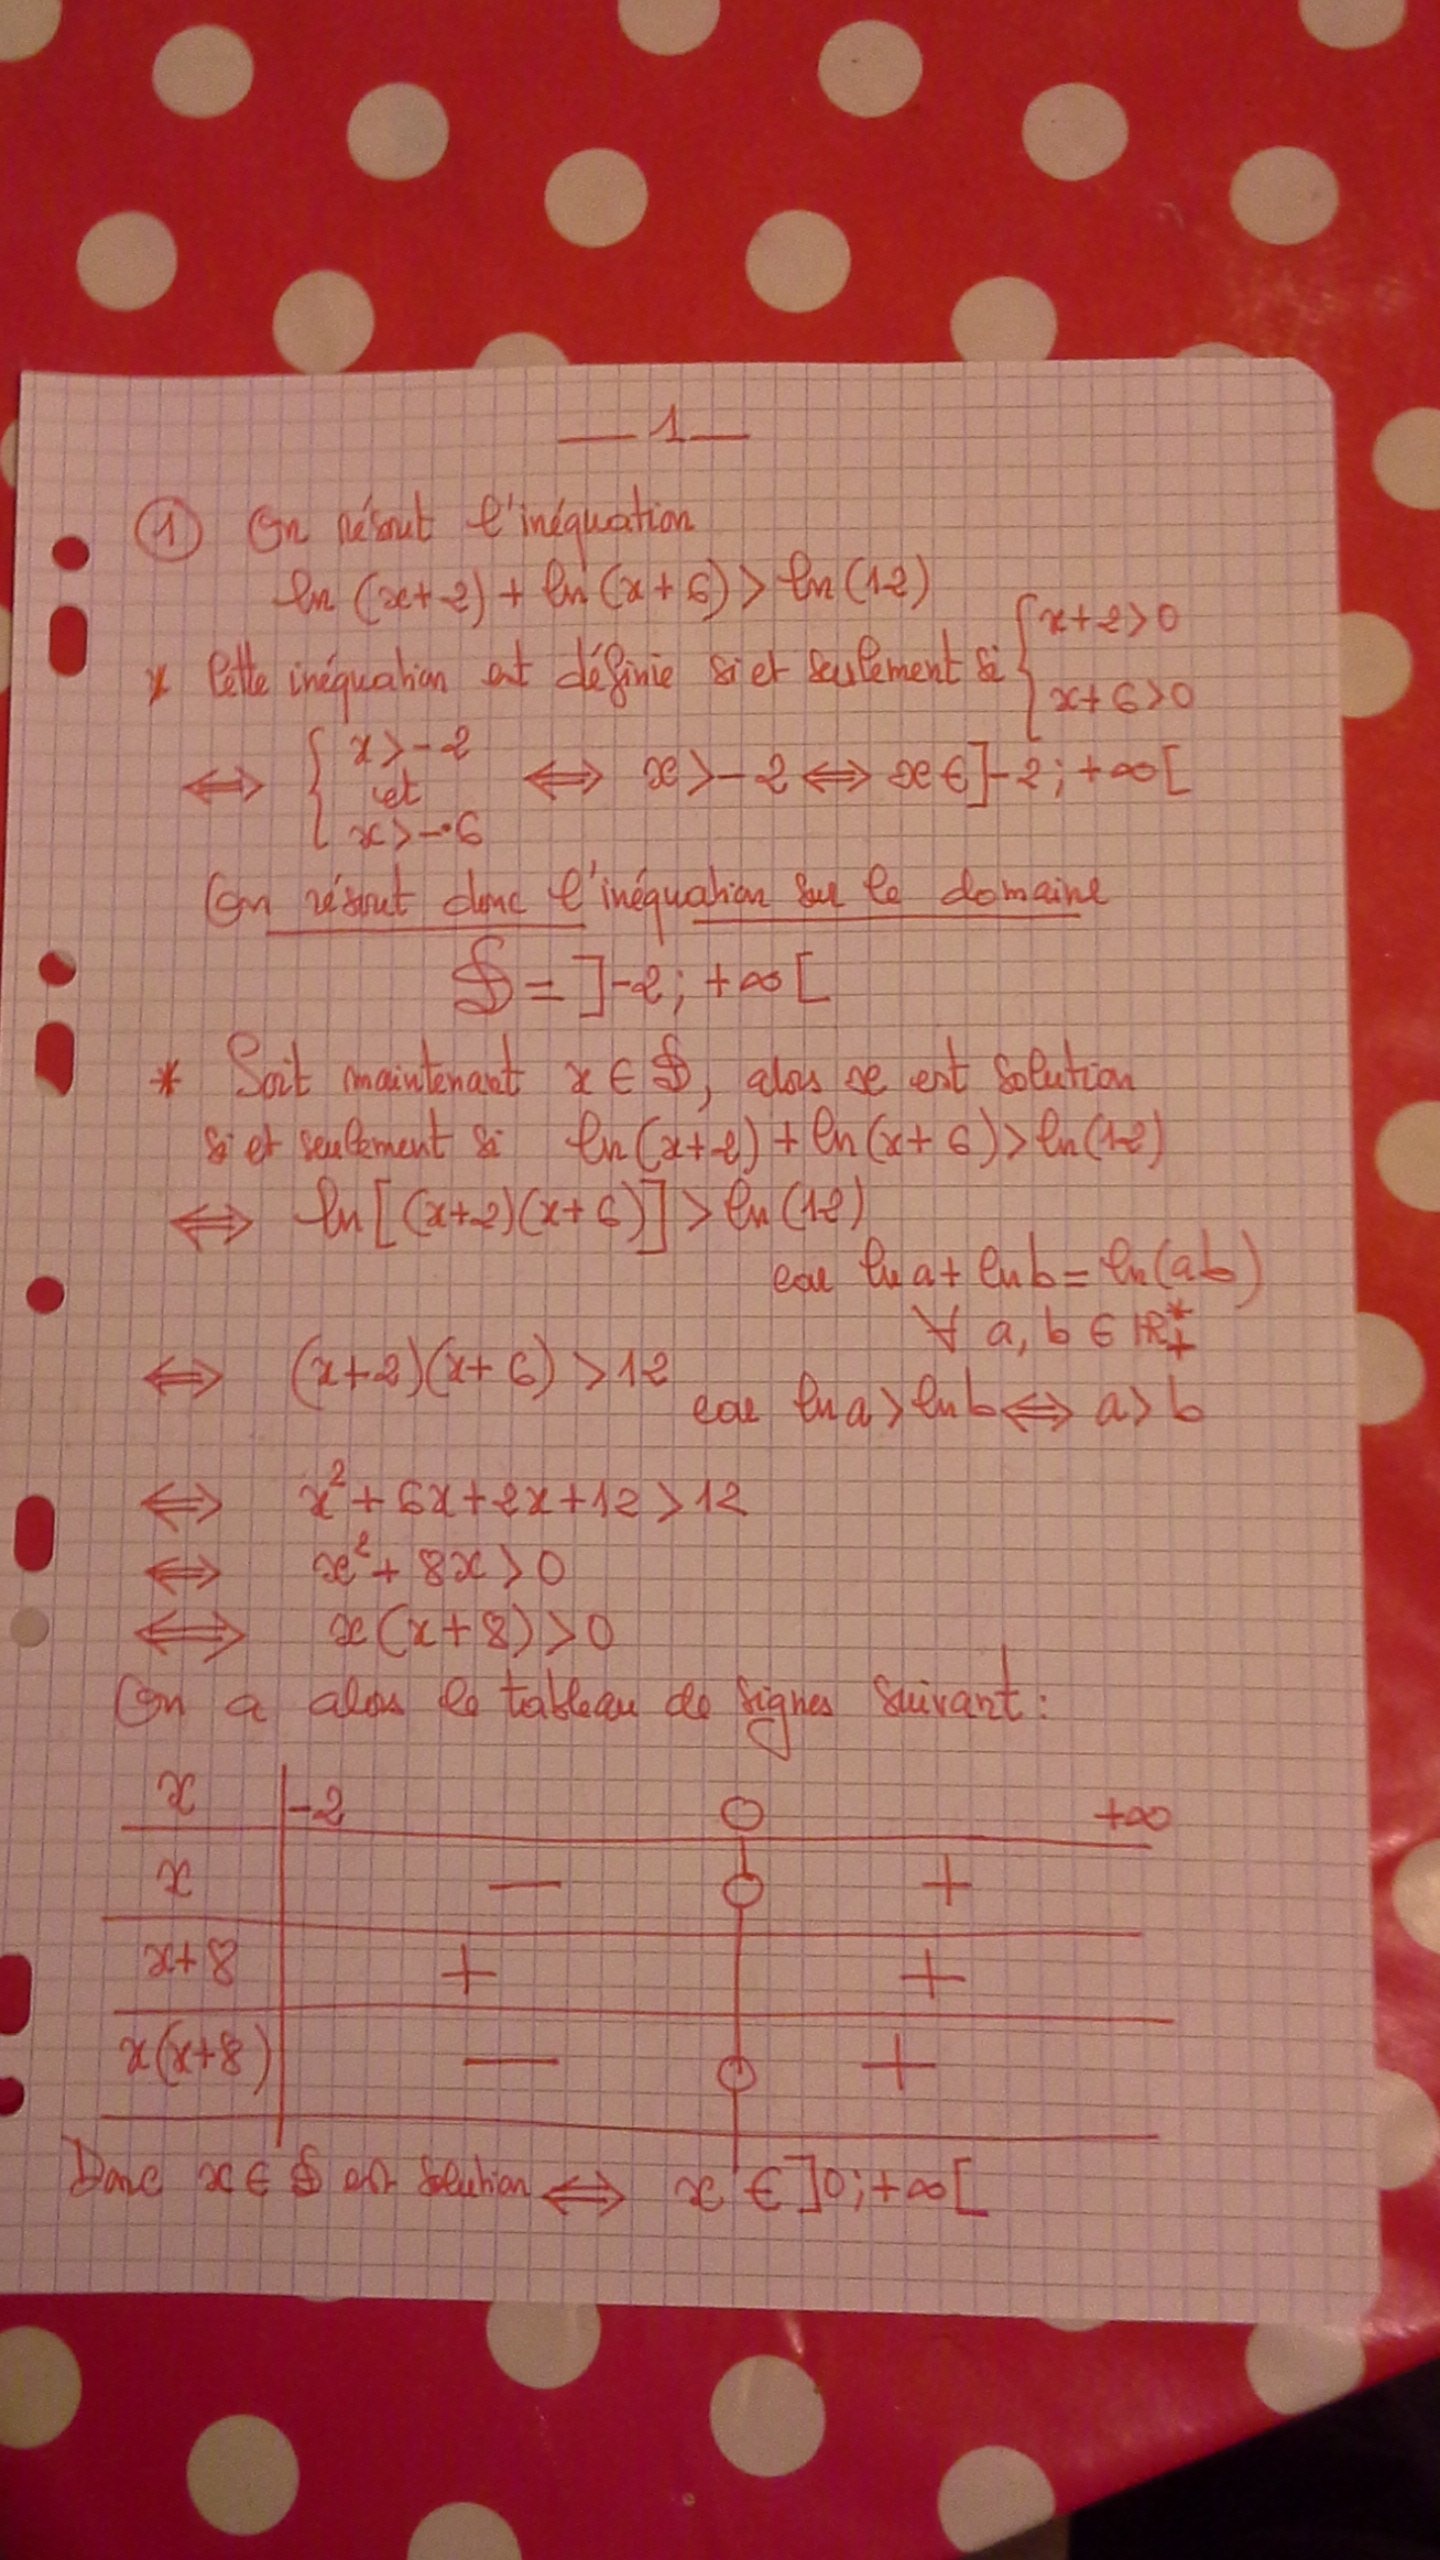 — 1 —
① On résout l'inéquation
ln (x+2) + ln (x+6) > ln (12)
* Cette inéquation est définie si et seulement si { x+2>0
x+6>0
⟺ { x>-2 et x>-6 ⟺ x>-2 ⟺ x∈]-2; +∞[
On résout donc l'inéquation sur le domaine
D = ]-2; +∞[
* Soit maintenant x ∈ D, alors x est solution
si et seulement si ln(x+2) + ln(x+6) > ln(12)
⟺ ln[(x+2)(x+6)] > ln(12)
car ln a + ln b = ln(ab)
∀ a, b ∈ ℝ*₊
⟺ (x+2)(x+6) > 12
car ln a > ln b ⟺ a > b
⟺ x² + 6x + 2x + 12 > 12
⟺ x² + 8x > 0
⟺ x(x+8) > 0
On a alors le tableau de signes suivant :
x | -2 0 +∞
x | — 0 +
x+8 | + +
x(x+8) | — 0 +
Donc x ∈ D est solution ⟺ x ∈ ]0; +∞[